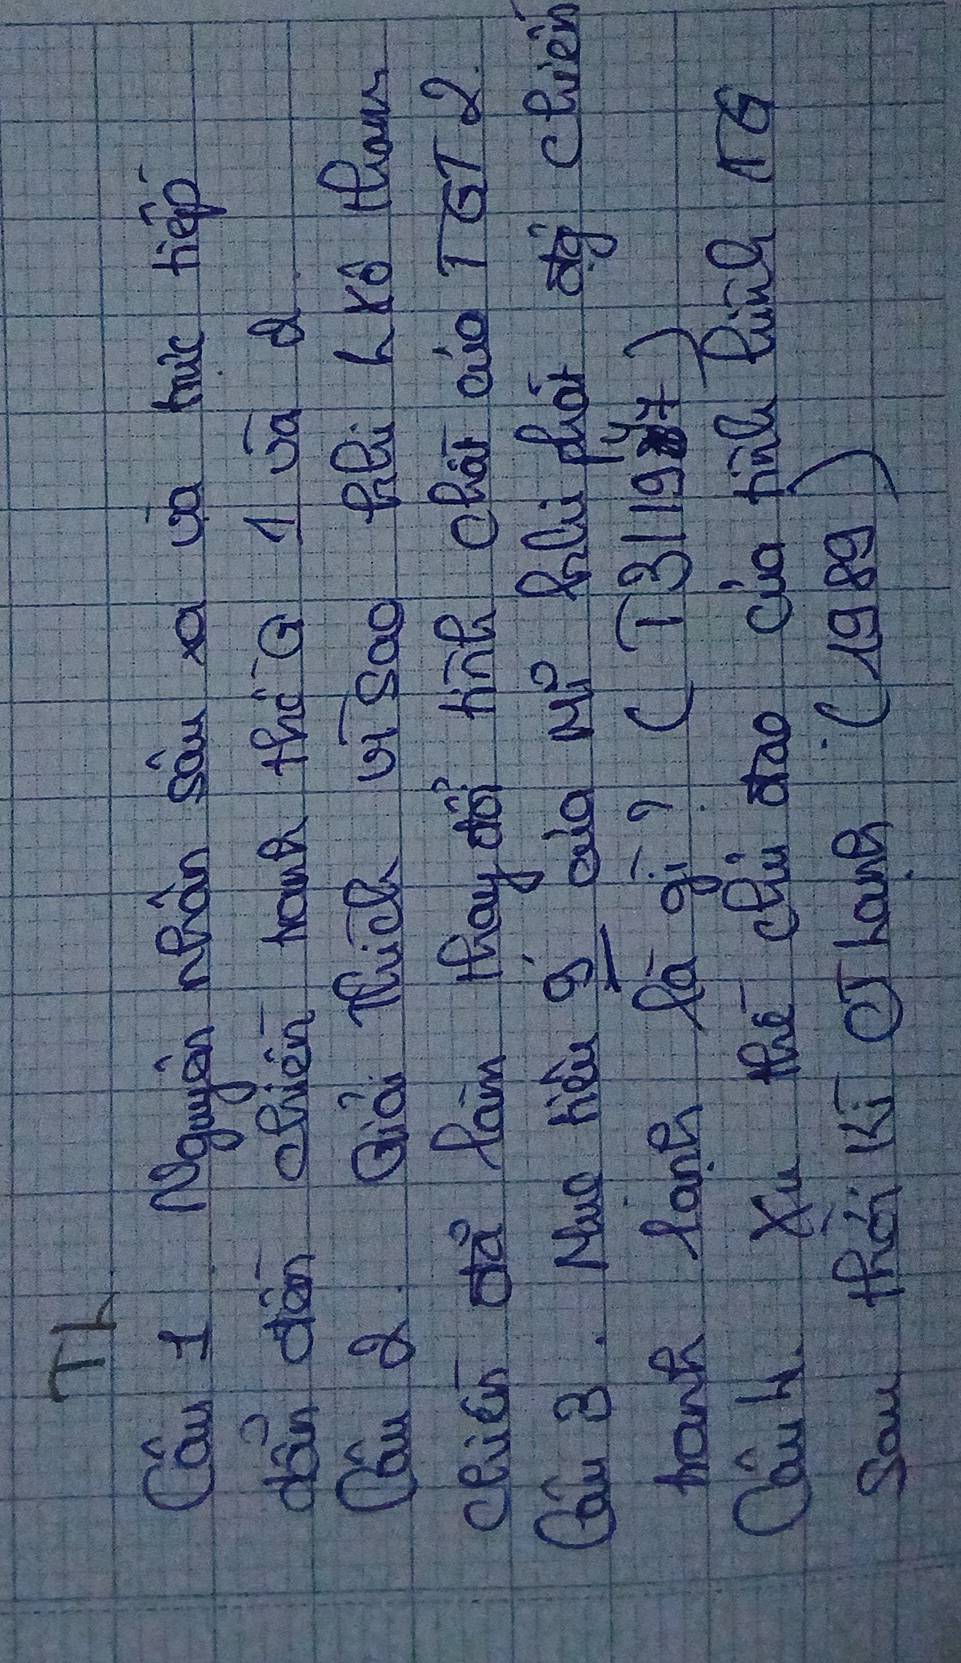 TL
Câu 1. Nguyên nhân sâu xa và trực tiếp
dẫn đến chiến tranh thế G 1 và 2.
Câu 2. Giải thích vì sao khi LXô tham
chiến đã làm thay đổi tính chất của TGT2.
Câu 3. Mục tiêu của Mĩ khi phát độ chiến
tranh lạnh là gì? (T3/1947)
Câu 4. Xu thế chủ đạo của tình hình TG
sau thời kì CT lạnh. (1989)